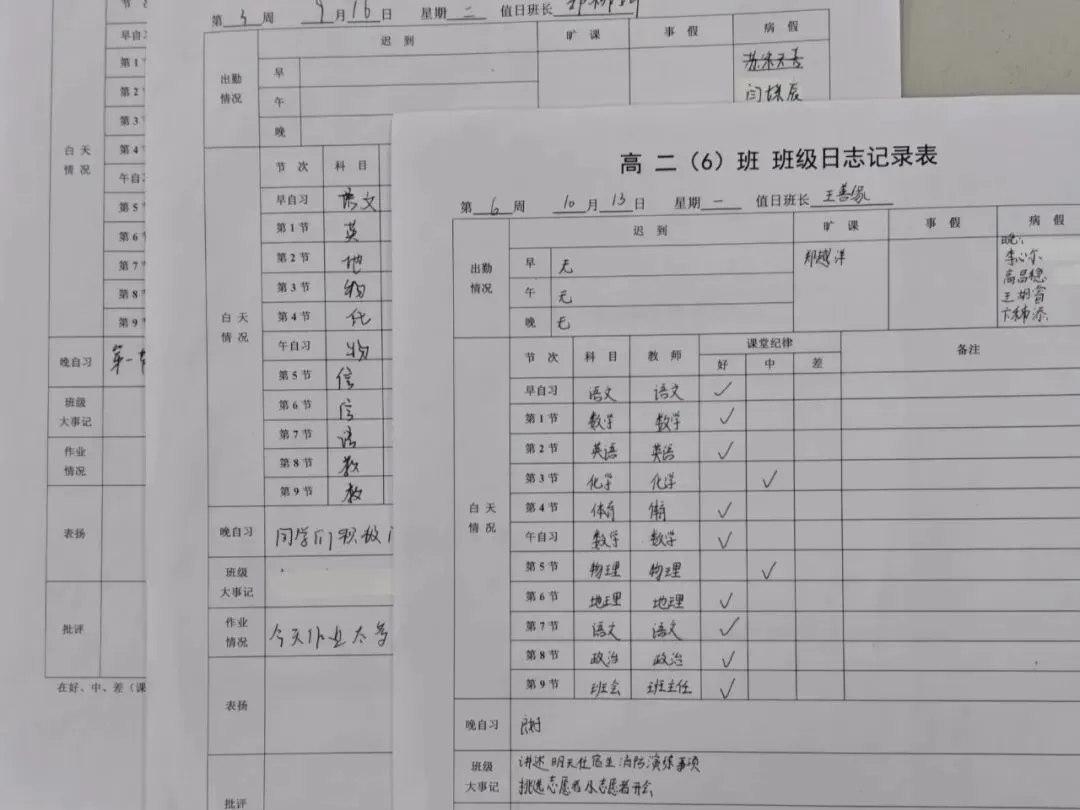 高 二（6）班 班级日志记录表
第 6 周 10 月 13 日 星期 一 值日班长 王善缘
出勤情况 迟 到 旷 课 事 假 病 假
早 无 郑越洋 晚：
午 无 李心尔
晚 无
白 天 情 况 节 次 科 目 教 师 课堂纪律 备注
好 中 差
早自习 语文 语文 ✓
第 1 节 数学 数学 ✓
第 2 节 英语 英语 ✓
第 3 节 化学 化学 ✓
第 4 节 体育 体育 ✓
午自习 数学 数学 ✓
第 5 节 物理 物理 ✓
第 6 节 地理 地理 ✓
第 7 节 语文 语文 ✓
第 8 节 政治 政治 ✓
第 9 节 班会 班主任 ✓
晚自习
班级 讲述明天住宿生消防演练事项
大事记 挑选志愿者及志愿者开会
第 3 周 9 月 16 日 星期 二 值日班长
出勤情况 迟 到 旷 课 事 假 病 假
早
午
晚
白 天 情 况 节 次 科 目
早自习 语文
第 1 节 英
第 2 节 地
第 3 节 物
第 4 节 化
午自习 物
第 5 节 信
第 6 节 信
第 7 节 语
第 8 节 数
第 9 节 数
晚自习 同学们积极
班级
大事记
作业 今天作业太多
情况
表扬
批评
早自习
第 1
第 2
第 3
白 天 第 4
情 况
午自习
第 5
第 6
第 7
第 8
第 9
晚自习 第一节
班级
大事记
作业
情况
表扬
批评
在好、中、差（课